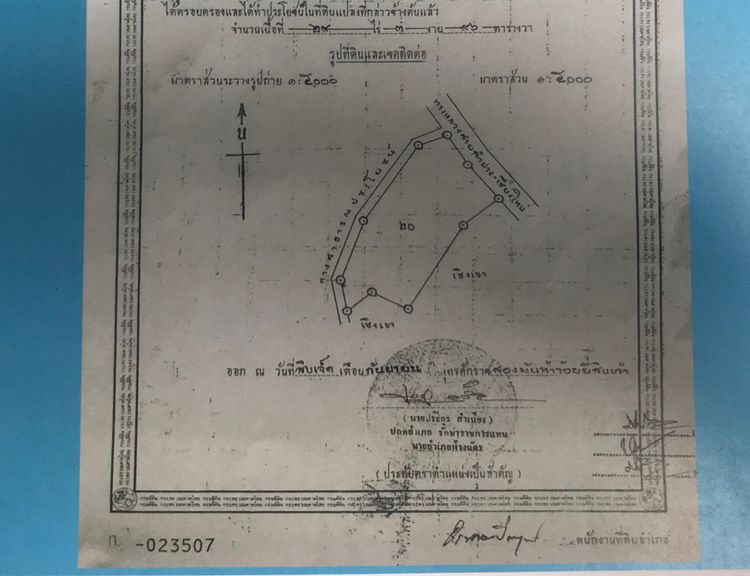 ได้ครอบครองและได้ทำประโยชน์ในที่ดินแปลงที่กล่าวข้างต้นแล้ว
จำนวนเนื้อที่ ๒๙ ไร่ ๓ งาน ๙๖ ตารางวา
รูปที่ดินและเขตติดต่อ
มาตราส่วนระวางรูปถ่าย ๑:๕๐๐๐
มาตราส่วน ๑:๕๐๐๐
น
ทางหลวงสายลำปาง-เชียงใหม่
ทางสาธารณประโยชน์
๒๐
เชิงเขา
เชิงเขา
ออก ณ วันที่ สิบเจ็ด เดือน กันยายน พุทธศักราช สองพันห้าร้อยยี่สิบเก้า
ปลัดอำเภอ รักษาราชการแทน
นายอำเภอห้างฉัตร
(ประทับตราตำแหน่งเป็นสำคัญ)
ก. -023507
พนักงานที่ดินอำเภอ